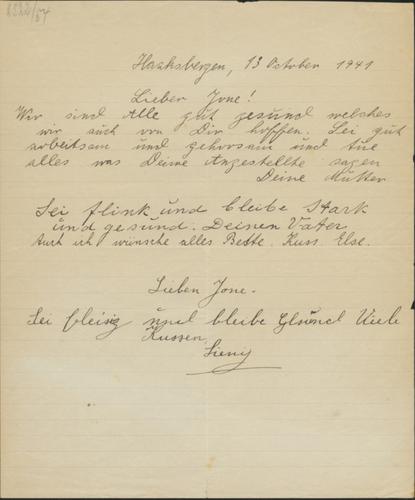 Haaksbergen, 13 October 1941
Lieber Jone!
Wir sind Alle gut gesund welches
wir auch von Dir hoffen. Sei gut
arbeitsam und gehorsam und tue
alles was Deine Angestellte sagen
Deine Mutter
Sei flink und bleibe Stark
und gesund. Deinen Vater
Auch ich wünsche alles Beste. Kuss. Else.
Lieben Jone.
Sei fleisig und bleibe Gesund Viele
Kussen